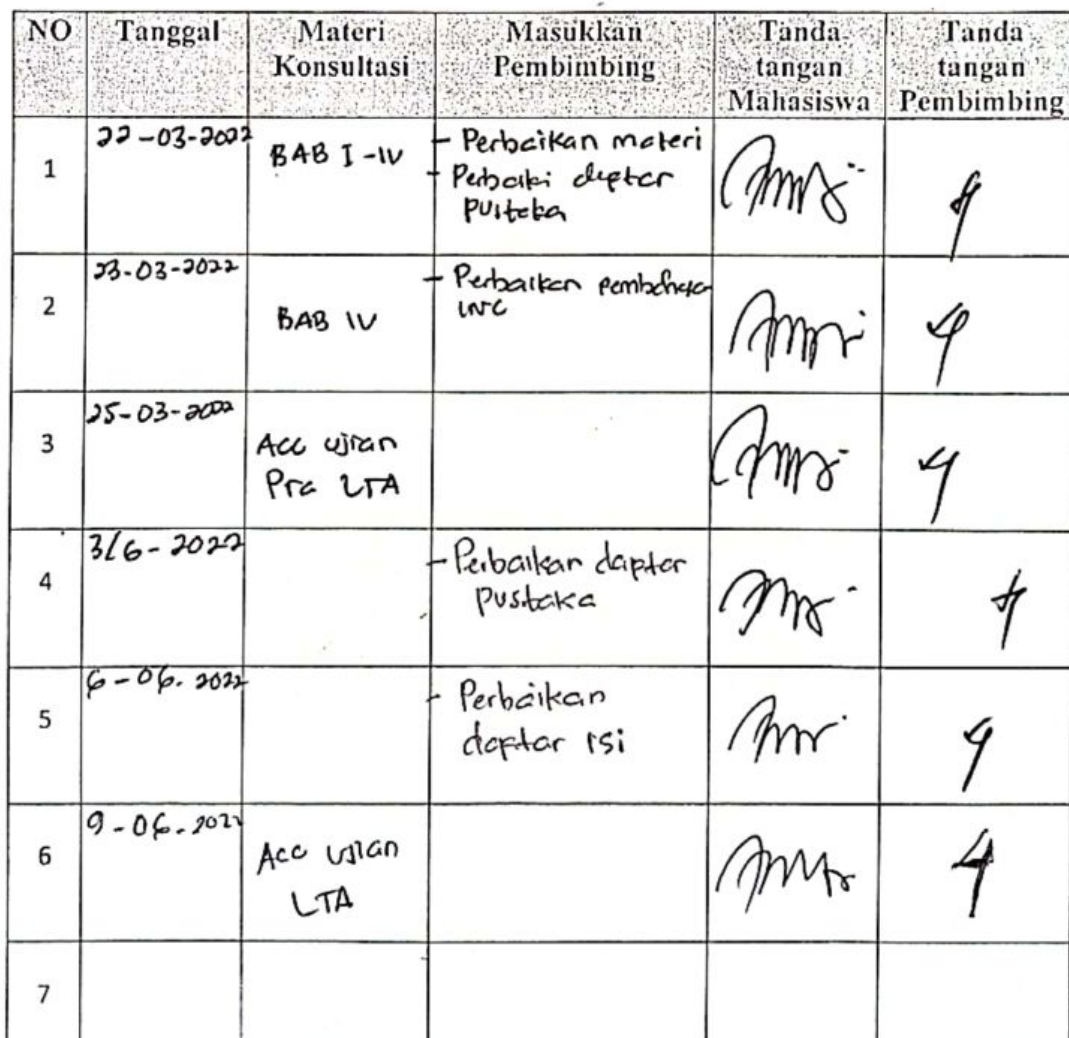 NO Tanggal Materi Konsultasi Masukkan Pembimbing Tanda tangan Mahasiswa Tanda tangan Pembimbing
1 22-03-2022 BAB I-IV - Perbaikan materi
- Perbaiki daptar
pustaka
2 23-03-2022 BAB IV - Perbaikan
INC
3 25-03-2022 Acc ujian
Pra LTA
4 3/6-2022 - Perbaikan daptar
pustaka
5 6-06.2022 - Perbaikan
daptar isi
6 9-06.2022 Acc ujian
LTA
7